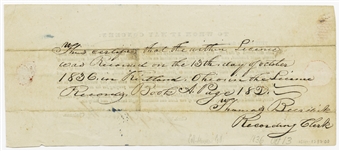 This certifies that the within License
was Recorded on the 13th day of October
1836 in Kirtland Ohio in the License
Records Book A Page 182
Thomas Burdick
Recording Clerk